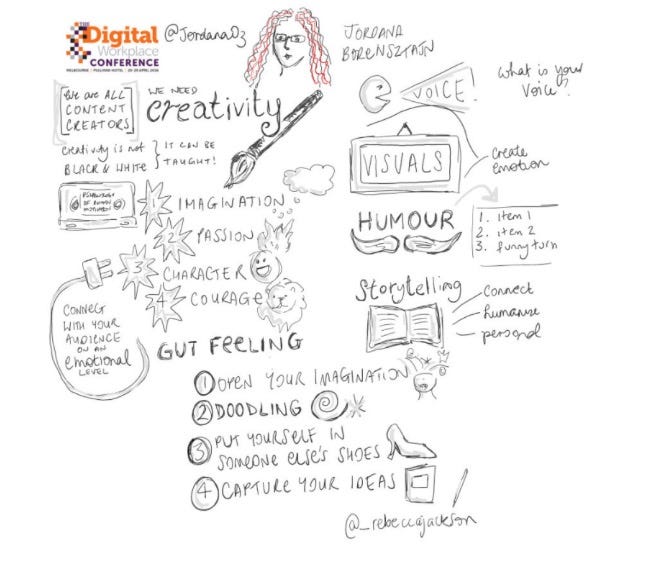 THE
Digital
Workplace
CONFERENCE
@JordanaO3
JORDANA
BORENSZTAJN
WE ARE ALL
CONTENT
CREATORS
WE NEED
creativity
creativity is not
BLACK & WHITE
IT CAN BE
TAUGHT!
VOICE!
What is your
Voice?
VISUALS
create
emotion
PSYCHOLOGY
OF HUMAN
MOTIVATION
1 IMAGINATION
2 PASSION
3 CHARACTER
4 COURAGE
HUMOUR
1. item 1
2. item 2
3. funny turn
CONNECT
WITH YOUR
AUDIENCE
ON AN
emotional
LEVEL
Storytelling
connect
humanise
personal
GUT FEELING
1 OPEN YOUR IMAGINATION
2 DOODLING
3 PUT YOURSELF IN
SOMEONE ELSE'S SHOES
4 CAPTURE YOUR IDEAS
@_rebeccajackson